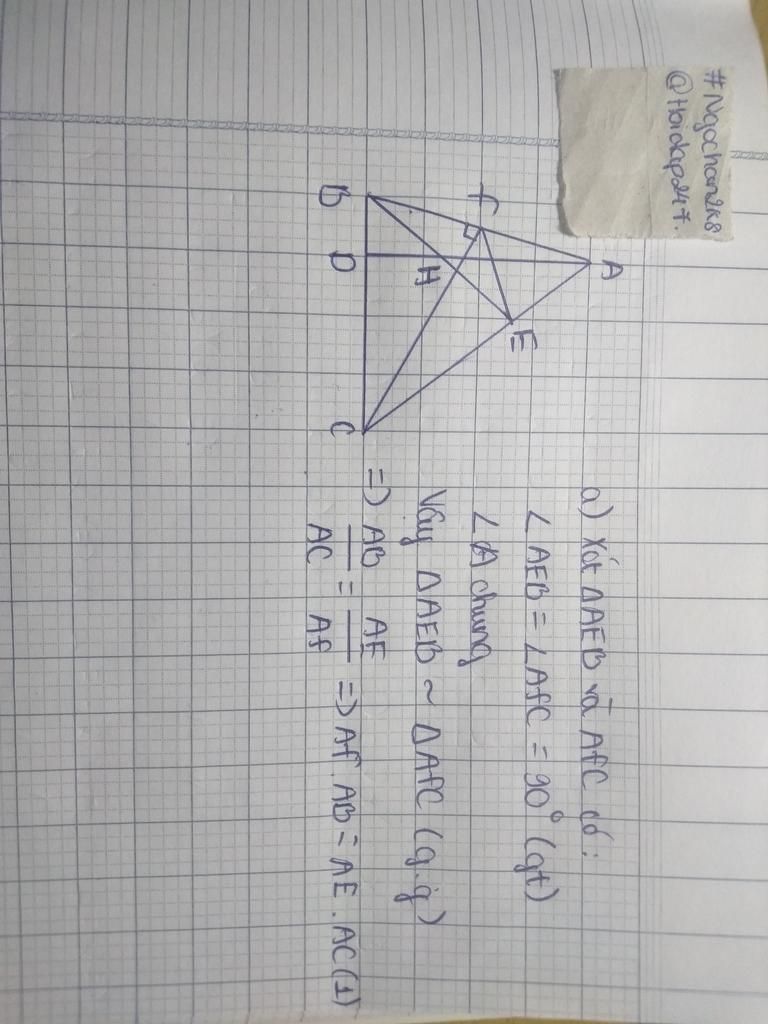 #Ngochan2k8
@Hoidap247.
A
f
E
H
B
D
C
a) Xét ΔAEB và AfC có:
∠AEB = ∠AfC = 90° (gt)
∠A chung
Vậy ΔAEB ~ ΔAfC (g.g)
=> AB/AC = AE/Af => Af.AB = AE.AC (1)